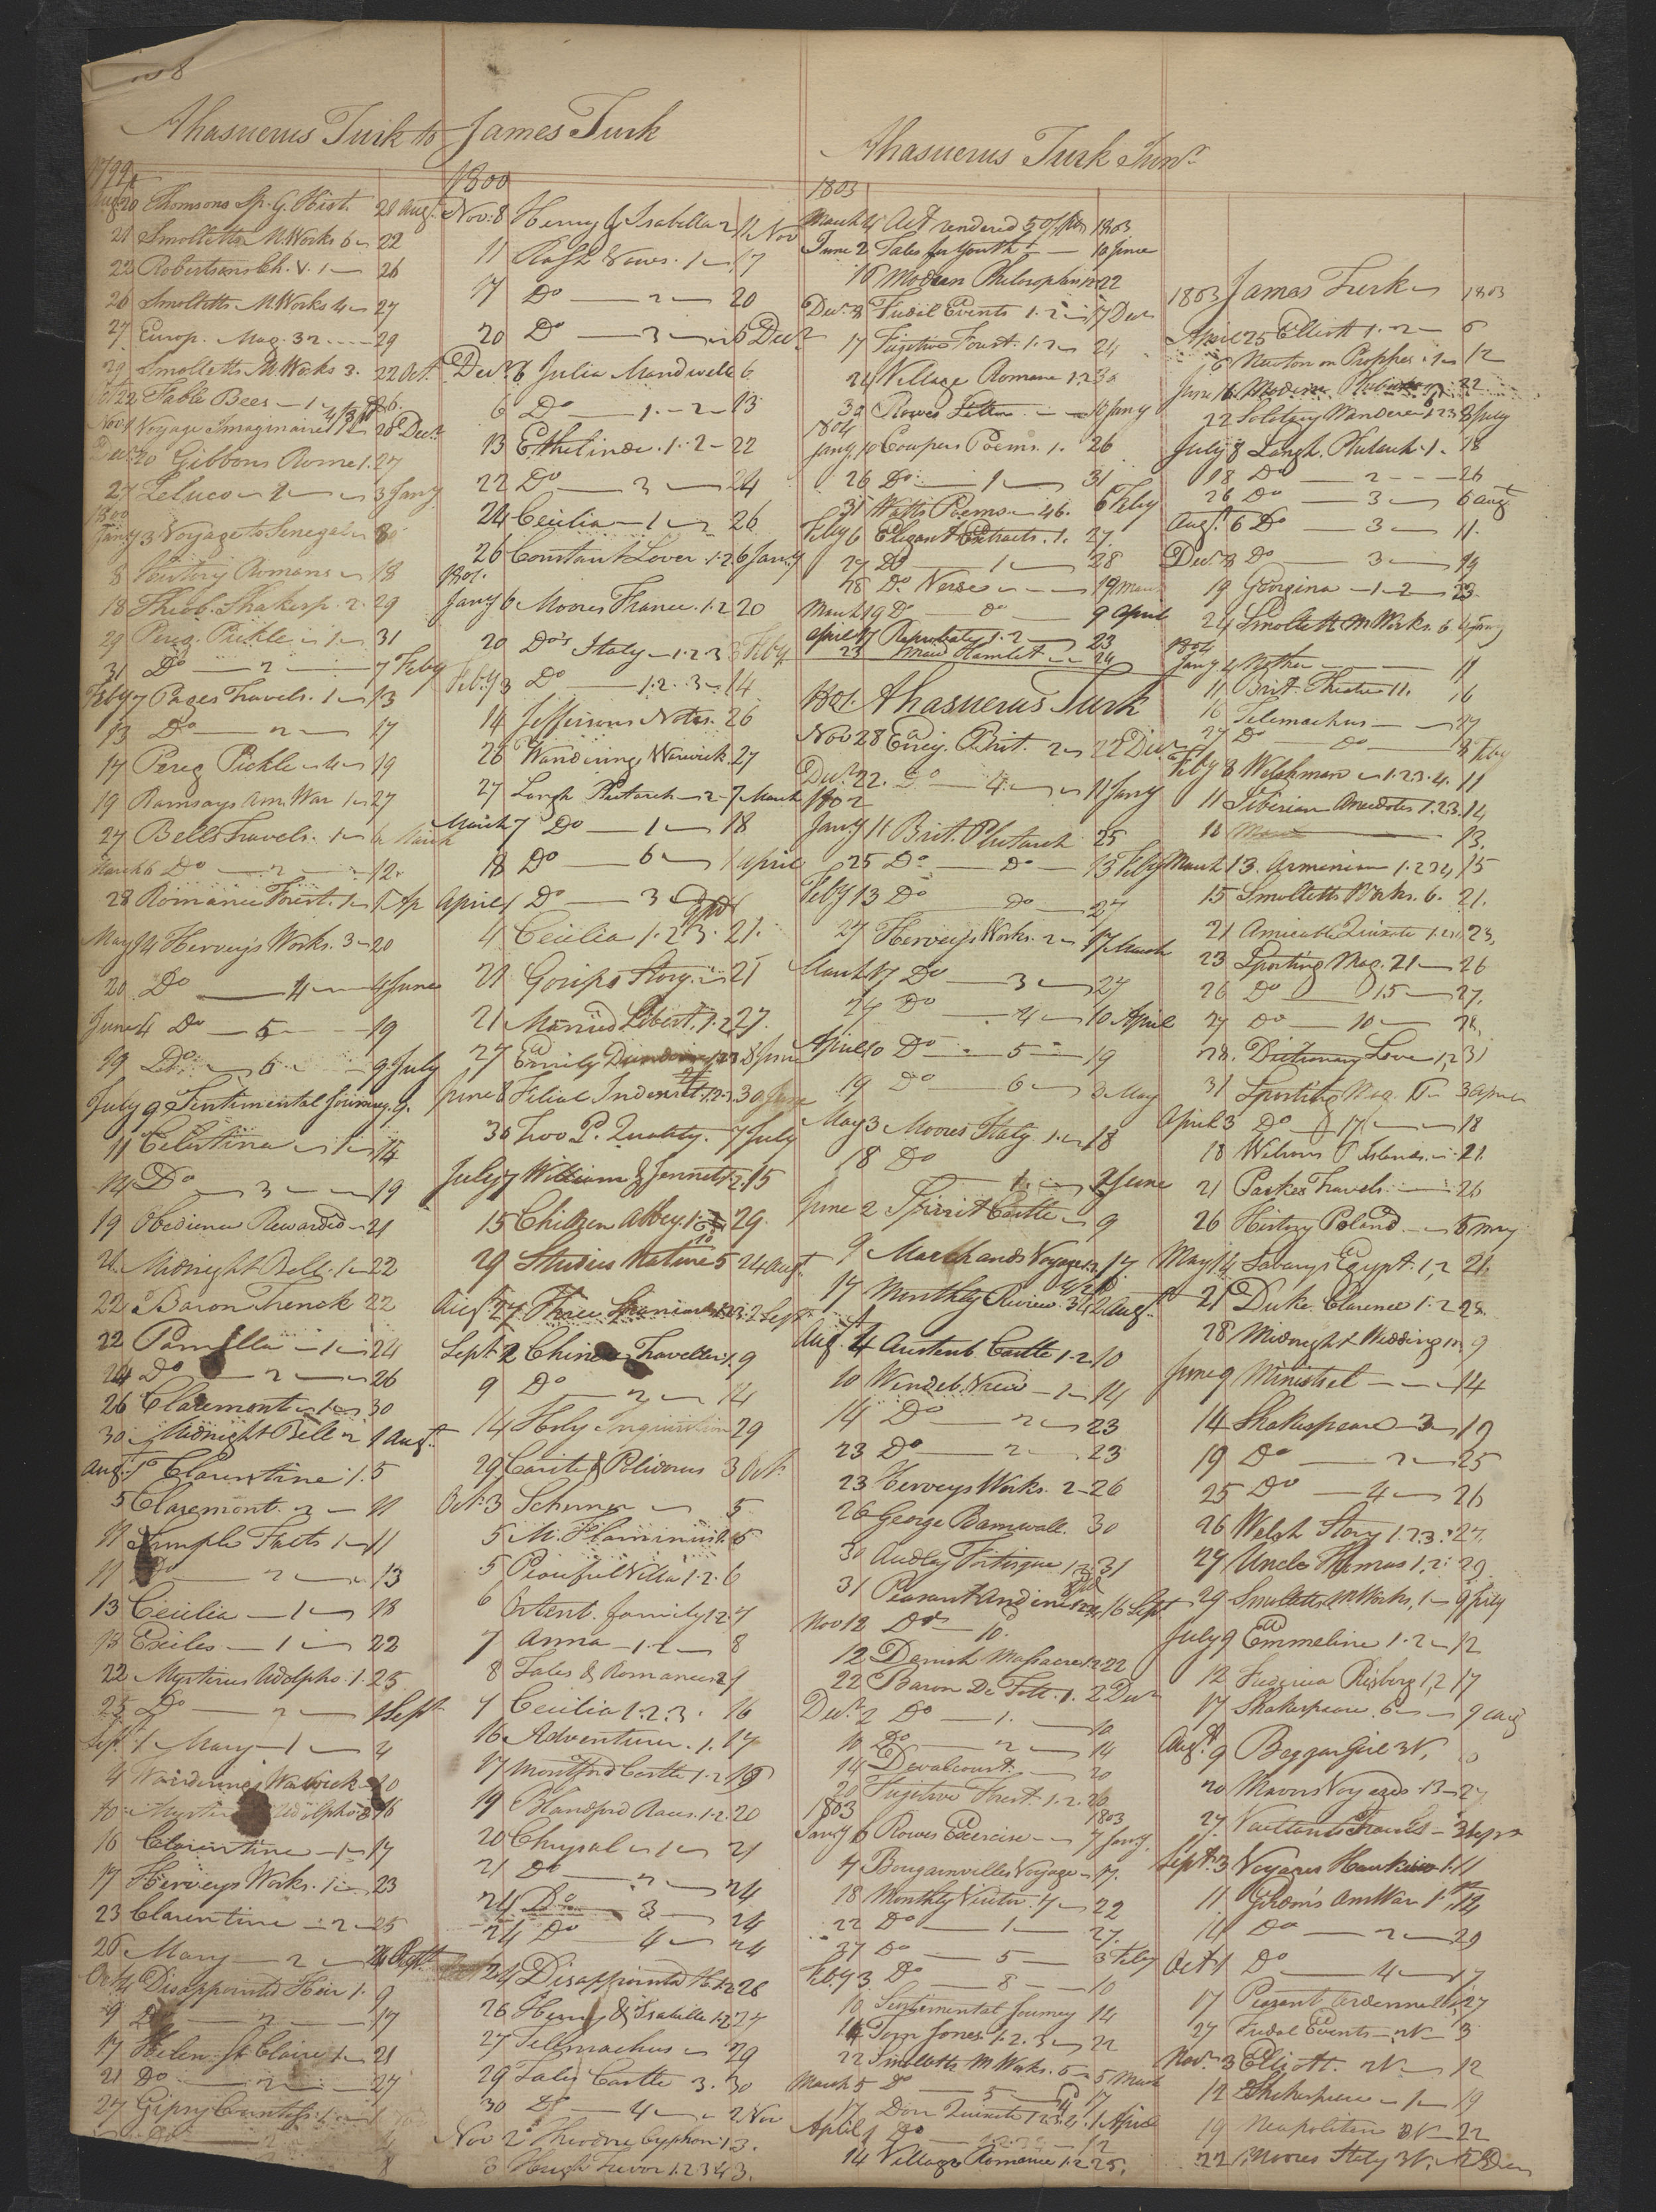 Ahasuerus Turk to James Turk
1799
Augt 20 Thomsons Sp. G. Hist. 21 Augt
21 Smolletts M. Works 6 22
22 Robertsons Ch. V. 1 26
26 Smolletts M. Works 4 27
27 Europ. Mag. 32 29
29 Smolletts M. Works 3. 22 Oct.
Oct 22 Fable Bees 1
Nov 1 Voyage Imaginaires 28 Decr
Decr 20 Gibbons Rome 1. 27
27 Zeluco 2 3 Jany
1800
Jany 3 Voyage to Senegal 8
8 Romans 18
18 Theob. Shakesp. 2. 29
29 Pereg. Pickle 1 31
31 Do 2 7 Feby
Feby 7 Pages Travels. 1 13
13 Do 2 17
17 Pereg Pickle 4 19
19 Ramsays Am. War 1 27
27 Bells Travels. 1 6 March
March 6 Do 2 12
28 Romance Forest. 1 5 Ap
May 14 Herveys Works. 3 20
20 Do 4 4 June
June 4 Do 5 19
19 Do 6 9 July
July 9 Sentimental Journey. 9.
11 Celestina 1 14
14 Do 3 19
19 Obedience Rewarded 21
21 Midnight Bell. 1 22
22 Baron Trenck 22
22 Pamella 1 24
24 Do 2 26
26 Claremont 1 30
30 Midnight Bell 2 1 Augt
Augt 1 Clarentine 1. 5
5 Claremont. 2 11
11 Simple Facts 1 11
11 Do 2 13
13 Cecilia 1 18
18 Exiles 1 22
22 Mysteries Udolpho. 1. 25
25 Do 2 1 Sept
Sept 1 Mary 1 4
4 Wandering Warwick 10
10 Myster Udolpho 3 16
16 Clarentine 1 17
17 Herveys Works. 1 23
23 Clarentine 2 25
25 Mary 2
Oct 4 Disappointed Heir 1. 9
9 Do 2 17
17 Helen St Claire 1 21
21 Do 2 27
27 Gipsy Countess. 1
1800
Nov. 8 Henry & Isabella 2 11 Nov
11 Rash Vows. 1 17
17 Do 2 20
20 Do 3 6 Decr
Decr 6 Julia Mandeville 6
6 Do 1. 2 13
13 Ethelinde. 1. 2 22
22 Do 3 24
24 Cecilia 1 26
26 Constant Lover 1.2 6 Jany
1801.
Jany 6 Moores France. 1.2 20
20 Dos Italy 1.2.3 3 Feby
Feby 3 Do 1. 2. 3 14
14 Jeffersons Notes. 26
26 Wandering Warwick. 27
27 Langh Plutarch 2 7 March
March 7 Do 1 18
18 Do 6 1 April
April 1 Do 3
4 Cecilia 1. 2 3. 21.
21 Gosips Story. 21
21 Married Libert. 1. 2 27.
27 Emily 1 23 8 June
June 8 Filial Indenst. 1.2. 30 June
30 Two P. Quality. 7 July
July 7 William & Jennet 1.2. 15
15 Children Abbey. 1. 29.
29 Studies Nature 5 24 Augt
Augt 27 Three Spaniards 1.2.3. 2 Sept
Sept 2 Chinese Traveller. 1. 9
9 Do 2 14
14 Holy Inquisition 29
29 Carite & Polidorus 3 Oct.
Oct. 3 5
5 M. Flaminius 1. 5
5 Peaceful Villa 1. 2. 6
6 family 1.2. 7
7 Anna 1. 2 8
8 Tales & Romances 2 9
9 Cecilia 1. 2. 3. 16
16 Adventurer. 1. 17
17 Montford Castle 1. 2 19
19 Blandford Races. 1.2. 20
20 Chrysal 1 21
21 Do 2 24
24 Do 3 24
24 Do 4 24
24 Disappointed H. 1.2 26
26 Henry & Isabella 1.2 27
27 Telemachus 29
29 Tales Castle 3. 30
30 Do 4 2 Nov
Nov 2 Theodore Cyphon. 1. 3.
3 Hugh Trevor 1.2 3 4 3.
Ahasuerus Turk Junr
1803
March 4 Act rendered 1803
June 2 Tales for Youth 10 June
16 Modern Philosophers 22
Decr 8 Fudal Events 1. 2 17 Decr
17 Fugitive Forest. 1. 2 24
24 Village Romance 1.2 30
30 Rowes Letters 10 Jany
1804
Jany 10 Cowpers Poems. 1. 26
26 Do 1 31
31 Watts Poems 46. 6 Feby
Feby 6 Elegant Extracts. 1. 27.
27 Do 1 28
28 Do Verse 19 March
March 19 Do do 9 April
April 17 Reprobate 1. 2 23
23 Maid Hamlet 24
1801. Ahasuerus Turk
Nov 28 Encey. Brit. 2 22 Decr
Decr 22. Do 4 11 Jany
1802
Jany 11 Brit. Plutarch 25
25 Do Do 13 Feby
Feby 13 Do Do 27
27 Herveys Works. 2 17 March
March 17 Do 3 27
27 Do 4 10 April
April 10 Do 5 19
19 Do 6 3 May
May 3 Moores Italy. 1 18
18 Do 1 2 June
June 2 Spirit Castle 9
9 Marchands Voyages 17
17 Monthly Review. 2 Augt
Augt 4 Austenb. Castle 1. 2. 10
10 Wendeb. View 1 14
14 Do 2 23
23 Do 2 23
23 Herveys Works. 2 26
26 George Barnwall. 30
30 Audley Fortiscue. 1.2 31
31 Peasant Ardenne 16 Sept
Nov 12 Do 10.
12 Danish Massacre 1.2 22
22 Baron De Tott. 1. 2 Decr
Decr 2 Do 1. 10
10 Do 2 14
14 Devalcourt 20
20 Fugitive Forest 1. 2. 26
1803 1803
Jany 6 Rowes Exercise 7 Jany
7 Bougainvilles Voyage 17.
18 Monthly Visitor. 7 22
22 Do 1 27.
27 Do 5 3 Feby
Feby 3 Do 8 10
10 Sentimental Journey 14
14 Tom Jones. 1. 2. 3 22
22 Smolletts M. Works. 5 5 March
March 5 Do 5 17
17 Don Quixote 1 2 3. 4. 1 April
April 1 Do 12
14 Village Romance 1.2 25.
1803 James Turk 1803
April 25 Elliott 1. 2 6
6 Newton on Prophes. 1 12
June 16 Modern 22
22 Solitary Wanderer 1 2 3 8 July
July 8 Langh. Plutarch. 1. 18
18 Do 2 26
26 Do 3 6 augt
Augt 6 Do 3 11.
Decr 8 Do 3 19
19 Georgina 1. 2 23
24 Smollett M. Works. 6 4 Jany
1804
Jany 4 11
11 Brit. Theatre 11. 16
16 Telemachus 27
27 Do do 8 Feby
Feby 8 Welshmans 1. 2 3. 4. 11
11 Siberian Anecdotes 1. 2 3. 14
13.
March 13. Armenian 1. 2 3 4 15
15 Smolletts Works. 6. 21.
21 Amicable Quixote 1. 23.
23 Sporting Mag. 21 26
26 Do 15 27.
27 Do 10 28.
28. Dictionary Love 1, 2 31
31 Sporting Mag. 3 April
April 3 Do 17 18
18 Wilsons P. Islands. 21.
21 Parkes Travels 26
26 History Poland 5 may
May 14 Savarys Egypt. 1, 2 21.
21 Duke Clarence 1. 2 28.
28 Midnight Wedding 9
June 9 Minstrel 14
14 Shakespeare 3 19
19 Do 2 25
25 Do 4 26
26 Welsh Story 1. 2 3. 27.
27 Uncle Thomas 1, 2. 29.
29 Smolletts M Works, 1 9 July
July 9 Emmeline 1. 2 12
12 Fredrica Risberg 1, 2 17
17 Shakespeare. 6 9 aug
Augt 9 Beggar Girl 3 V.
20 Mavors Voyages 13 27
27. Vaillants Travels 3 Sept
Sept. 3 Voyages 1. 11
11 Gordons Am War 1. 14
14 Do 2 29
Oct 1 Do 4 17
17 Peasant Ardennes 27
27 Fudal Events 2 V 3
Novr 3 Elliott. 2 V. 12
12 Shakespeare 1 19
19 Neapolitan 3 V 22
22 Moores Italy 3 V. 5 Dec